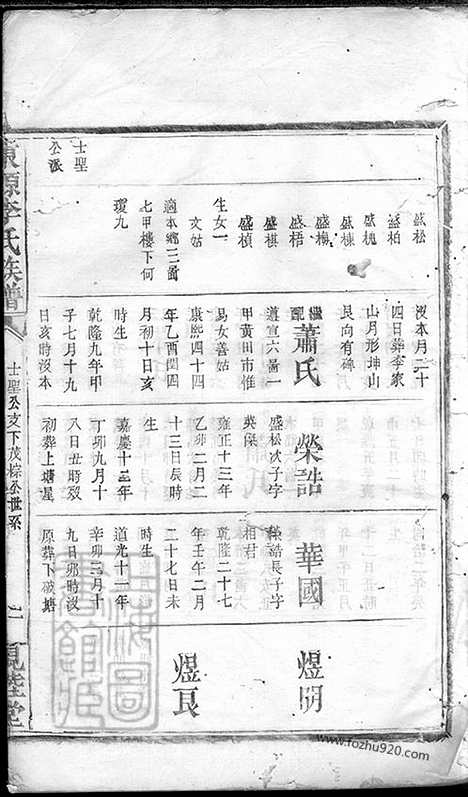 盛松
盛柏
盛槐
盛棟
盛梅
盛梧
盛棋
盛楨
生女一
文姑
適本鄉三圖
七甲樓下何
瓊九
士聖
公派
沒本月二十
四日葬李家
山月形坤山
艮向有碑
繼配蕭氏
道宣六圖一
甲黃田市惟
易女善姑
康熙四十四
年乙酉閏四
月初十日亥
時生
乾隆九年甲
子七月十九
日亥時沒本
榮誥
盛松次子字
英保
雍正十三年
乙卯二月二
十三日辰時
生
嘉慶十二年
丁卯九月十
八日丑時歿
初葬上塘星
華國
榮誥長子字
相君
乾隆二十七
年壬午二月
二十七日未
時生
道光十一年
辛卯三月十
九日卯時沒
原葬下破塘
煜明
煜艮
源李氏族譜
士聖公支下茂棕公世系
親睦堂
www.fozhu920.com